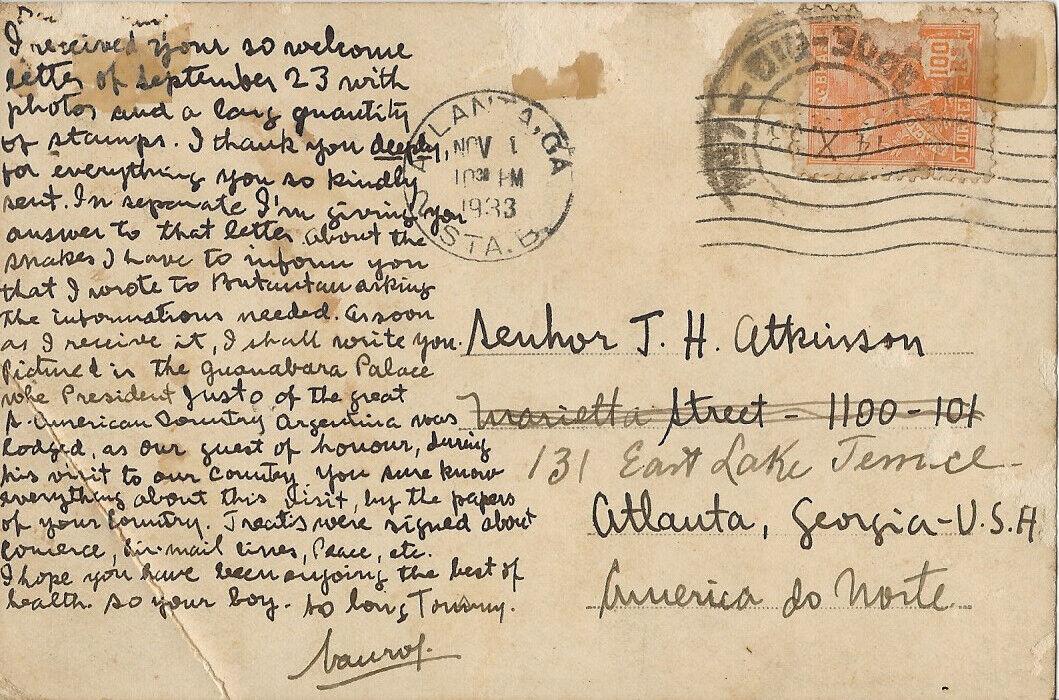 I received your so welcome
letter of September 23 with
photos and a larg quantity
of stamps. I thank you deeply,
for everything you so kindly
sent. In separate I'm giving you
answer to that letter about the
snakes I have to inform you
that I wrote to Butantan asking
the informations needed. As soon
as I receive it, I shall write you.
Pictured is the Guanabara Palace
President Justo of the great
S. American Country Argentina was
lodged, as our guest of honour, during
his visit to our Country. You sure know
everything about this visit, by the papers
of your Country. Treatis were signed about
Comerce, Air-mail lines, Peace, etc.
I hope you have been enjoing the best of
health. So your boy. So long Tommy.
ATLANTA, GA
NOV 1
PM
1933
STA. B.
100
14 X 33
Senhor J. H. Atkinson
Marietta Street - 1100-101
131 East Lake Terrace
Atlanta, Georgia - U.S.A
America do Norte